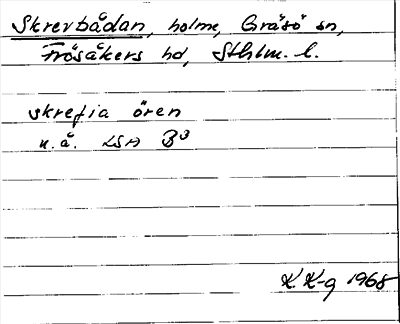 Skrevbådan, holme, Gräsö sn,
Frösåkers hd, Sthlm. l.
skrefia ören
n.å. LSA B3
K K-g 1968